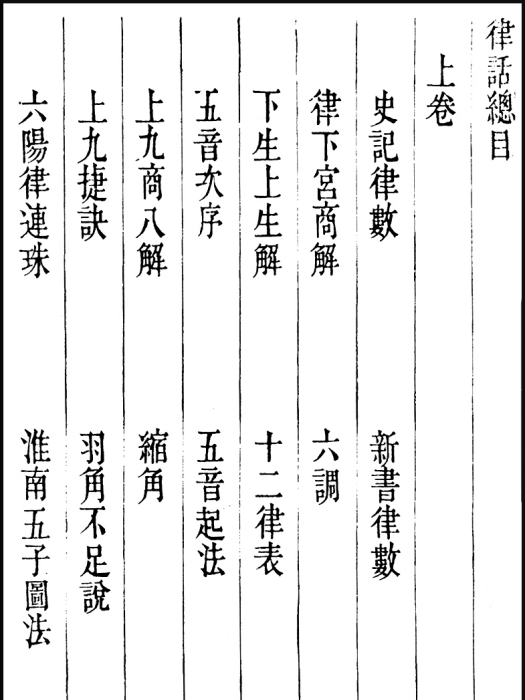 律話總目
上卷
史記律數　新書律數
律下宮商解　六調
下生上生解　十二律表
五音次序　五音起法
上九商八解　縮角
上九捷訣　羽角不足說
六陽律連珠　淮南五子圖法